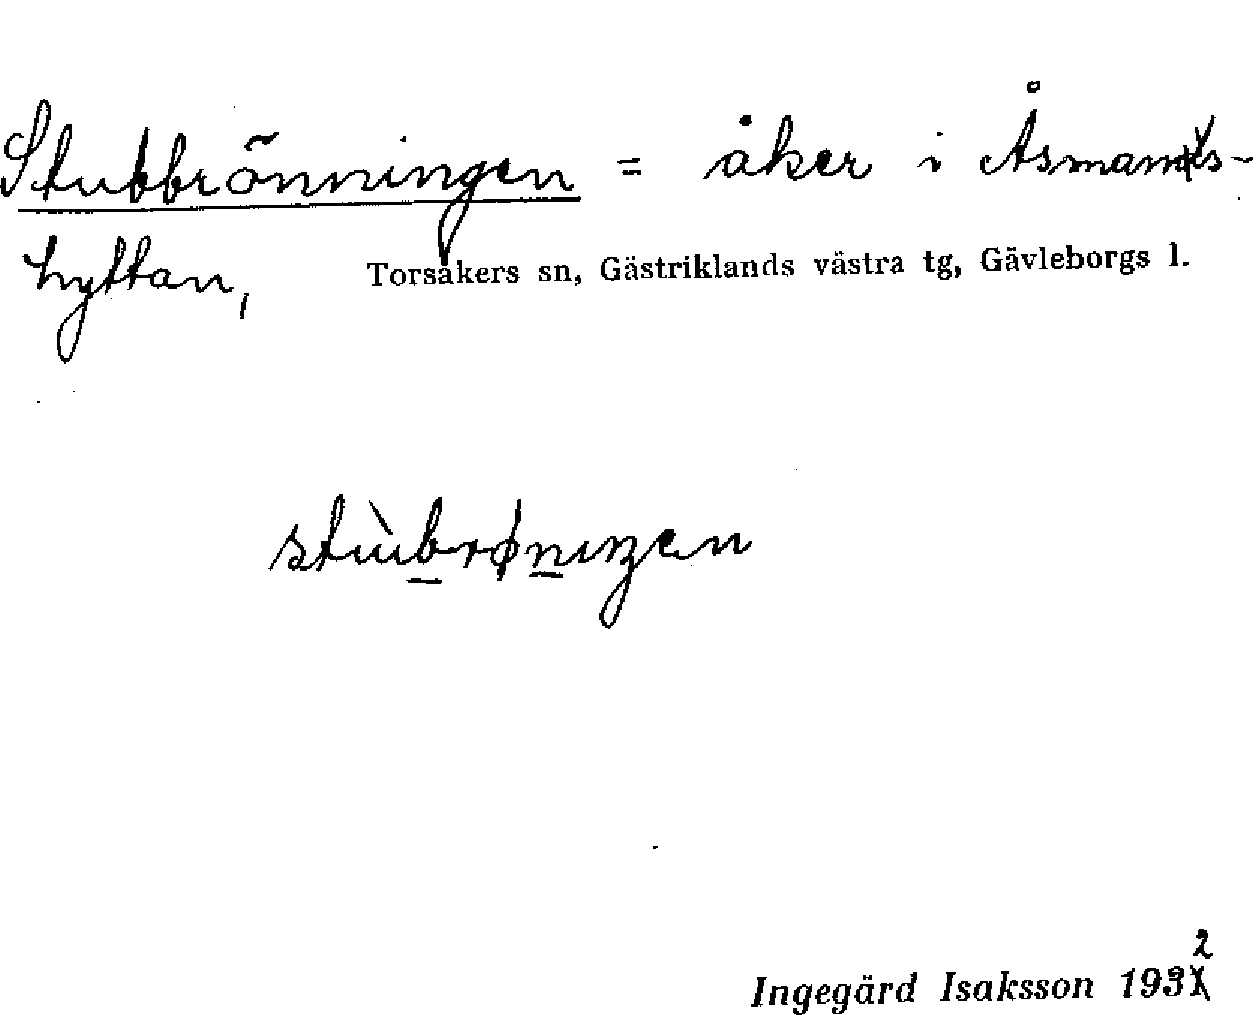 Stubbrönningen = åker i Åsmans-
hyttan, Torsåkers sn, Gästriklands västra tg, Gävleborgs l.
stùbrøniŋen
Ingegärd Isaksson 1932